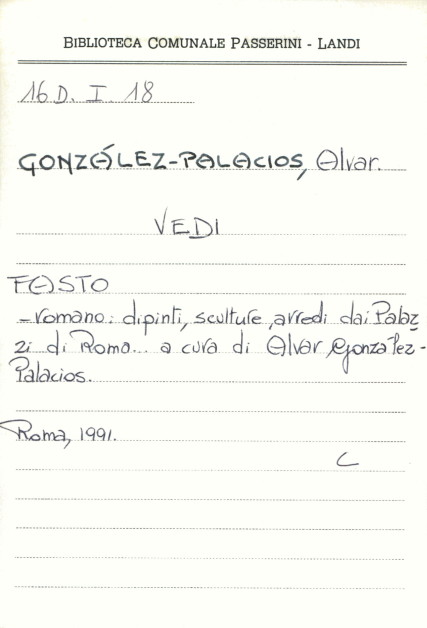 BIBLIOTECA COMUNALE PASSERINI - LANDI
16 D. I. 18
GONZÁLEZ-PALACIOS, Alvar.
VEDI
FASTO
- romano: dipinti, sculture, arredi dai Palaz
zi di Roma... a cura di Alvar González-
Palacios.
Roma, 1991.
C